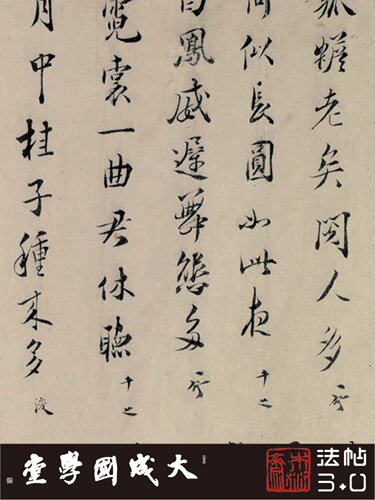 孤蟾老矣閱人多
何似長圓如此夜
白鳳威遲舞態多
霓裳一曲君休聽
月中桂子種來多
大成國學堂
法帖
3.0